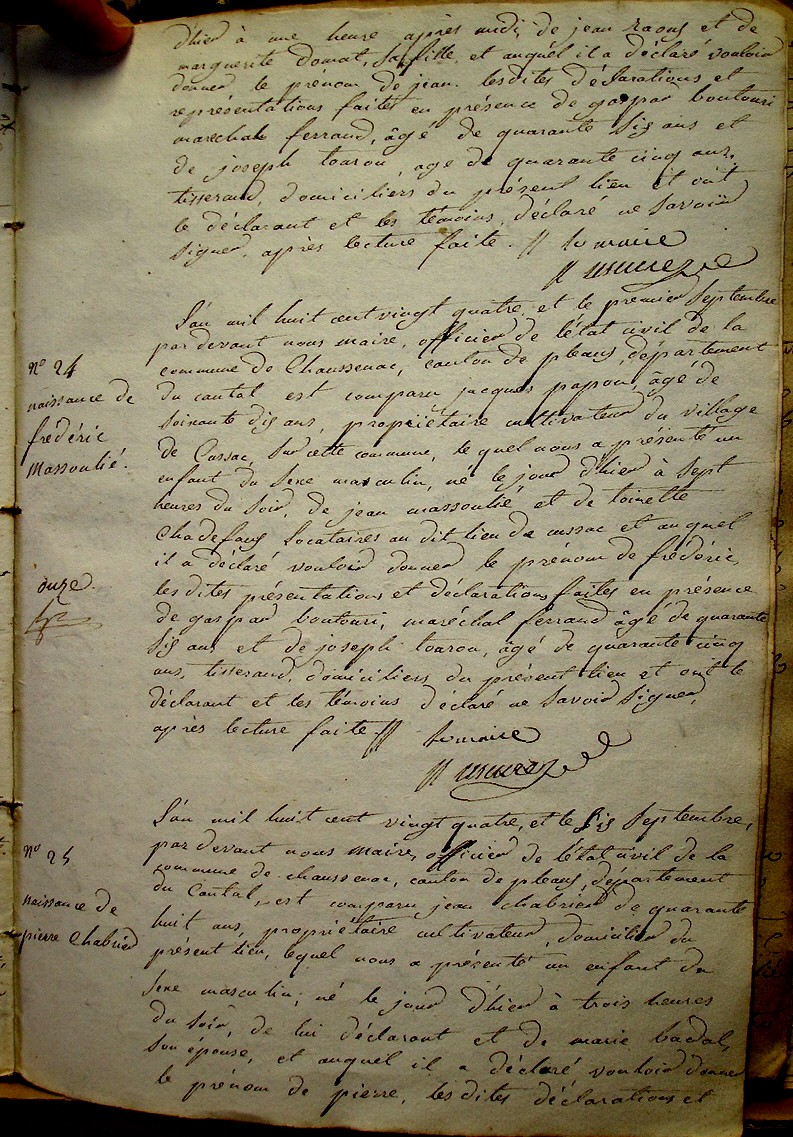 d'hier à une heure après midi, de jean Raous et de
marguerite domat, sa fille, et auquel il a déclaré vouloir
donner le prénom de jean. lesdites déclarations et
représentations faites en présence de gaspar boutouri
marechal ferrand, âgé de quarante six ans et
de joseph tourou, age de quarante cinq ans,
tisserand, domiciliers du présent lieu et ont
le déclarant et les témoins, déclaré ne savoir
signer, après lecture faite. // le maire
L'an mil huit cent vingt quatre, et le premier Septembre
par devant nous maire, officier de l'état civil de la
commune de Chaussenac, canton de pleaux, département
du cantal est comparu jacques papon, âgé de
soixante dix ans, propriétaire cultivateur du village
de Cussac, sur cette commune, lequel nous a présenté un
enfant du sexe masculin, né le jour d'hier à sept
heures du soir, de jean massoulié et de toinette
Chadefaux locataires au dit lieu de cussac et auquel
il a déclaré vouloir donner le prénom de frédéric,
lesdites présentations et déclarations faites en présence
de gaspar boutouri, maréchal ferrand âgé de quarante
six ans et de joseph tourou, âgé de quarante cinq
ans, tisserand, domiciliers du présent lieu et ont le
déclarant et les témoins déclaré ne savoir signer,
après lecture faite // le maire
nº 24
naissance de
frédéric
Massoulié.
onze.
L'an mil huit cent vingt quatre, et le six Septembre,
par devant nous maire, officier de l'état civil de la
commune de chaussenac, canton de pleaux, département
du Cantal, est comparu jean chabrier de quarante
huit ans, propriétaire cultivateur, domicilier du
présent lieu, lequel nous a présenté un enfant du
sexe masculin, né le jour d'hier à trois heures
du soir, de lui déclarant et de marie badal,
son épouse, et auquel il a déclaré vouloir donner
le prénom de pierre, lesdites déclarations et
nº 25
naissance de
pierre Chabrier